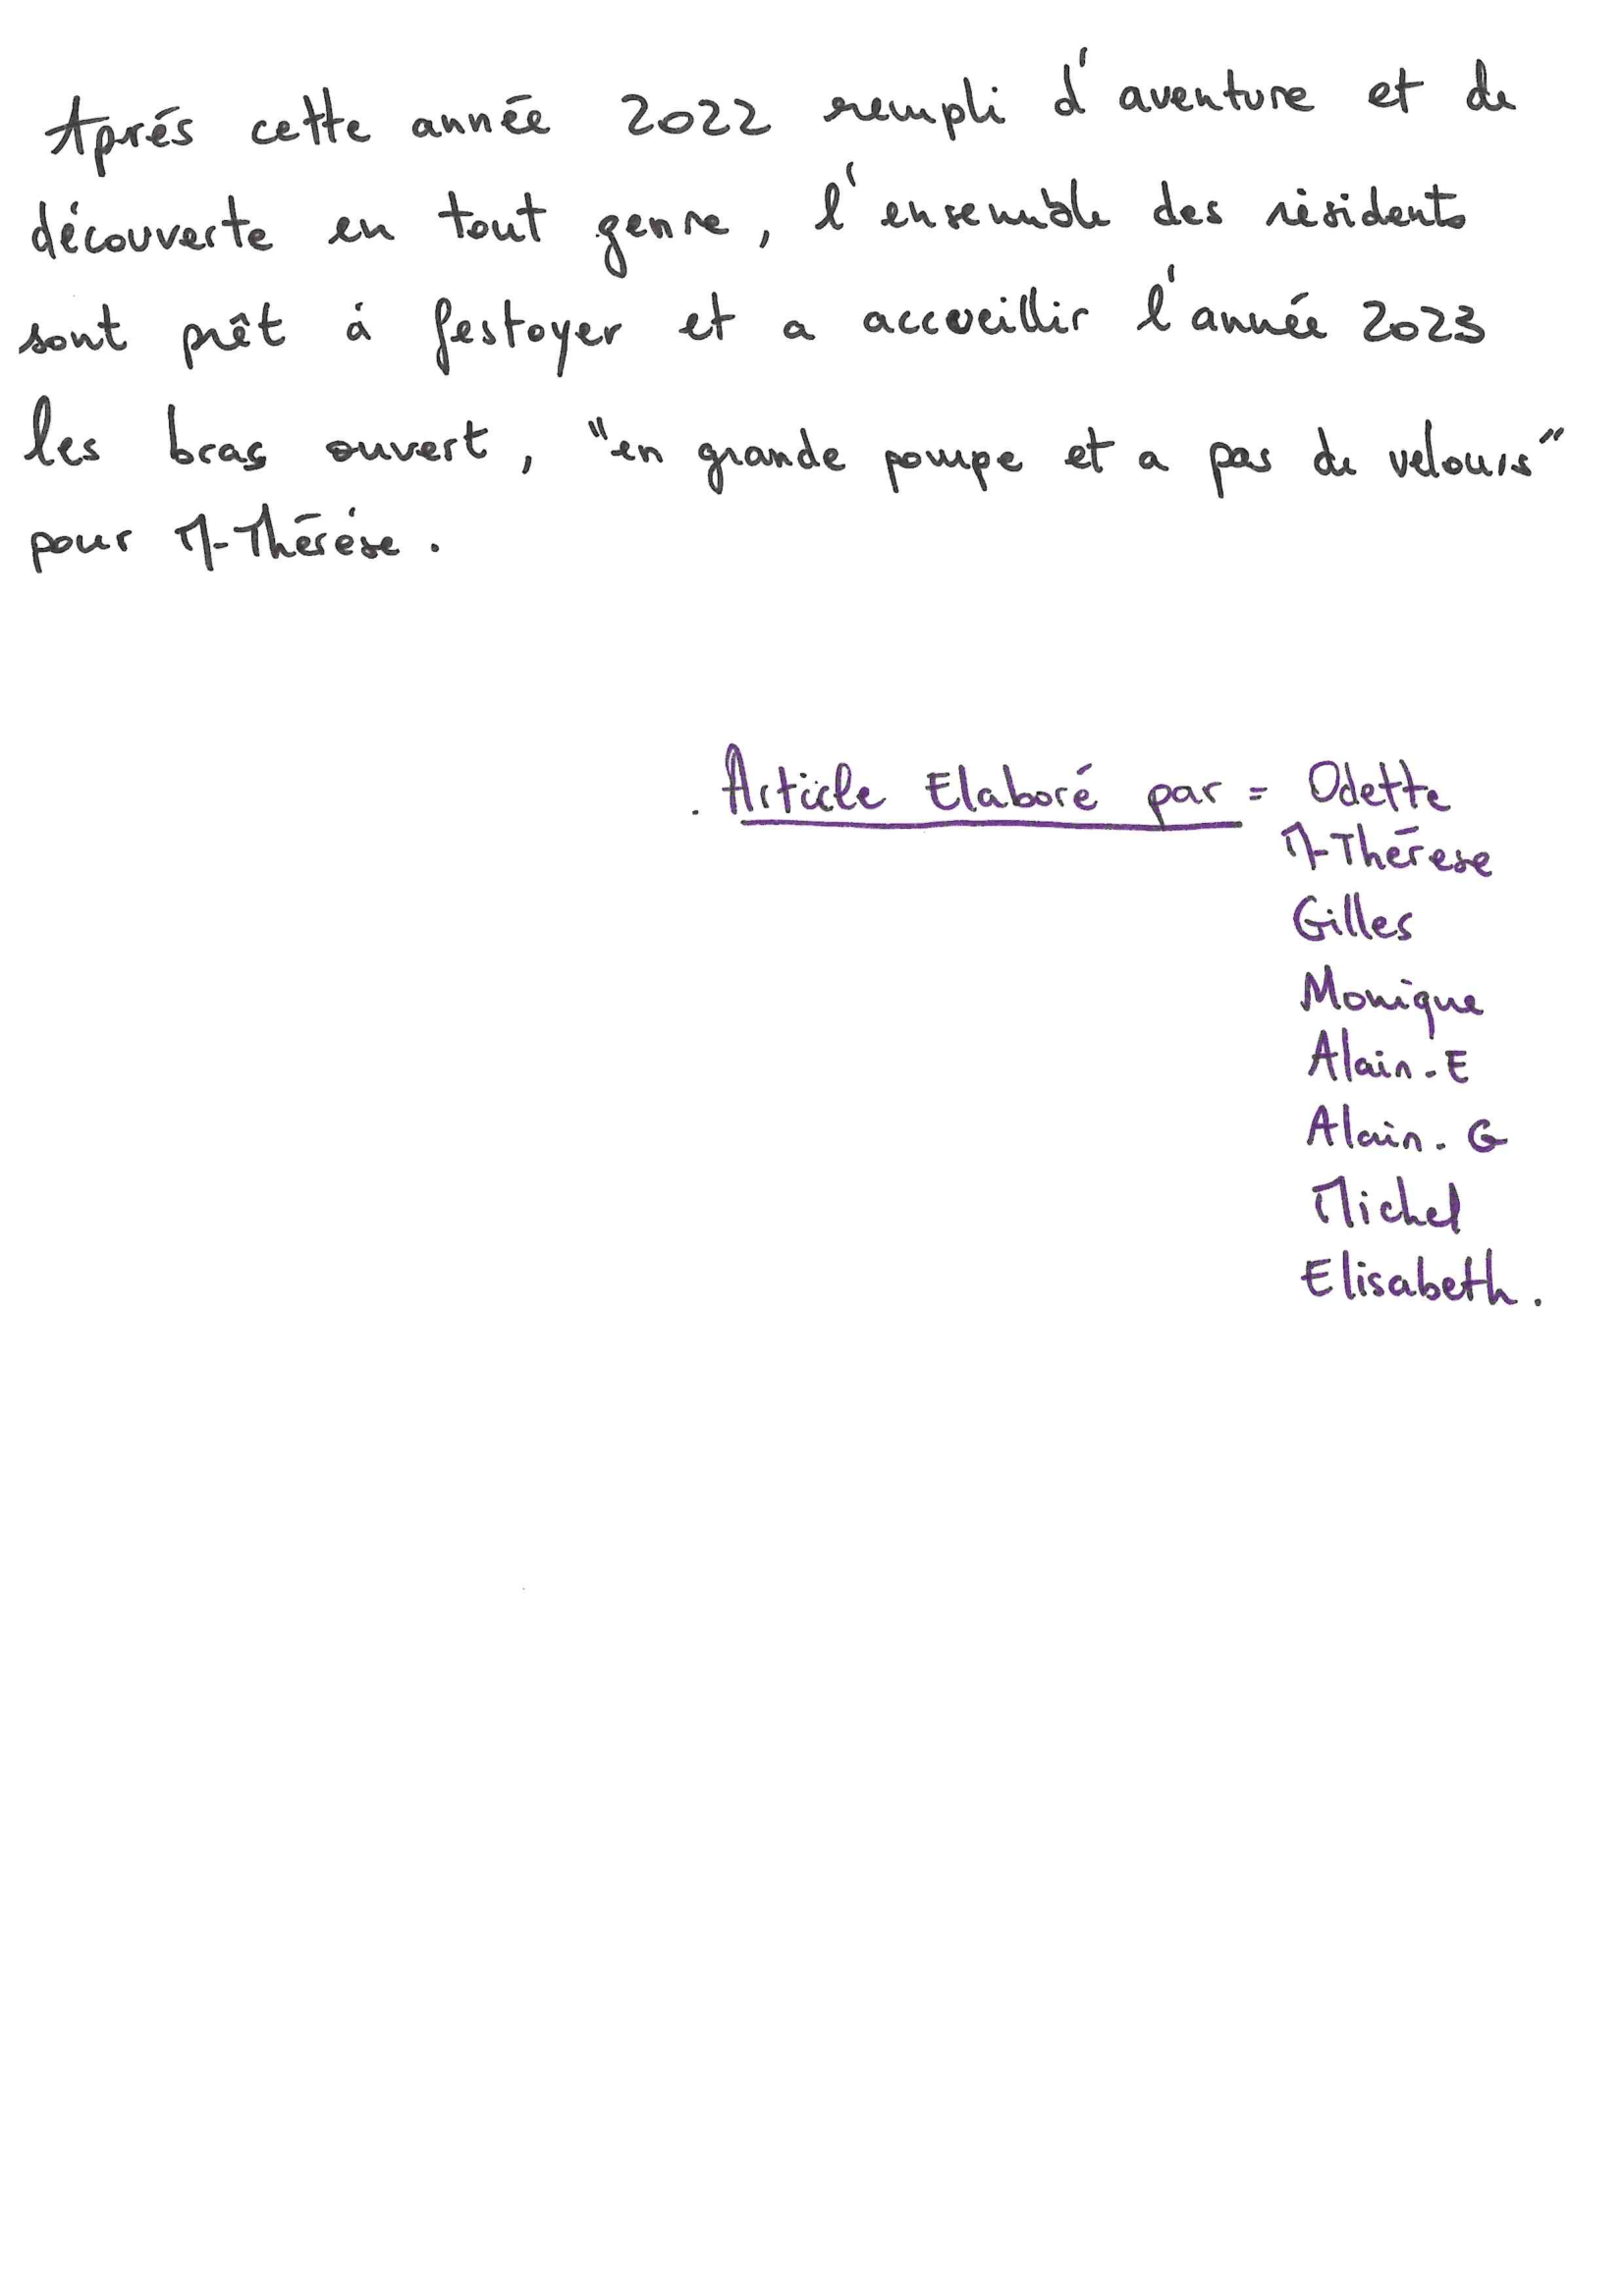 Aprés cette année 2022 rempli d'aventure et de
découverte en tout genre, l'ensemble des résidents
sont prêt à festoyer et a accueillir l'année 2023
les bras ouvert, "en grande pompe et a pas de velours"
pour M-Thérése.
. Article Elaboré par = Odette
M-Thérese
Gilles
Monique
Alain-E
Alain-G
Michel
Elisabeth.